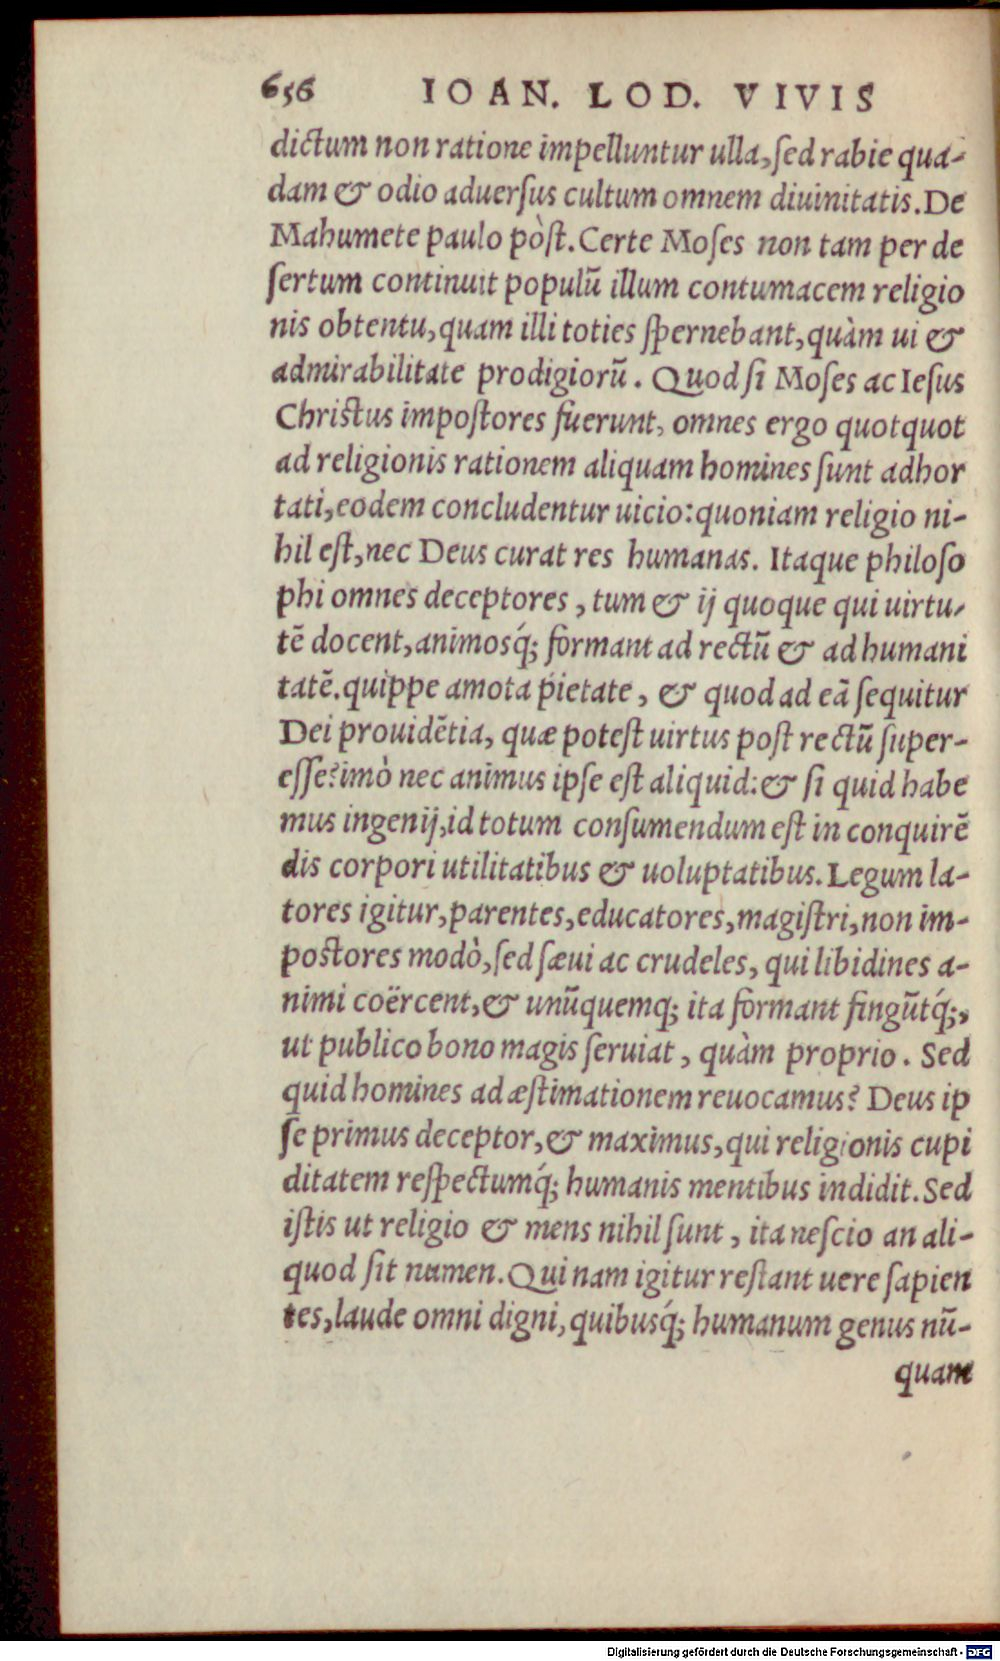 656 IOAN. LOD. VIVIS
dictum non ratione impelluntur ulla, ſed rabie qua-
dam & odio aduerſus cultum omnem diuinitatis. De
Mahumete paulo pòſt. Certe Moſes non tam per de
ſertum continuit populū illum contumacem religio
nis obtentu, quam illi toties ſpernebant, quàm ui &
admirabilitate prodigiorū. Quod ſi Moſes ac Ieſus
Chriſtus impoſtores fuerunt, omnes ergo quotquot
ad religionis rationem aliquam homines ſunt adhor
tati, eodem concludentur uicio: quoniam religio ni-
hil eſt, nec Deus curat res humanas. Itaque philoſo
phi omnes deceptores, tum & ij quoque qui uirtu-
tē docent, animosq́; formant ad rectū & ad humani
tatē. quippe amota pietate, & quod ad eā ſequitur
Dei prouidētia, quæ poteſt uirtus poſt rectū ſuper-
eſſe? imò nec animus ipſe eſt aliquid: & ſi quid habe
mus ingenij, id totum conſumendum eſt in conquirē
dis corpori utilitatibus & uoluptatibus. Legum la-
tores igitur, parentes, educatores, magiſtri, non im-
poſtores modò, ſed ſæui ac crudeles, qui libidines a-
nimi coërcent, & unūquemq; ita formant fingūtq́;,
ut publico bono magis ſeruiat, quàm proprio. Sed
quid homines ad æſtimationem reuocamus? Deus ip
ſe primus deceptor, & maximus, qui religionis cupi
ditatem reſpectumq́; humanis mentibus indidit. Sed
iſtis ut religio & mens nihil ſunt, ita neſcio an ali-
quod ſit numen. Qui nam igitur reſtant uere ſapien
tes, laude omni digni, quibusq́; humanum genus nū-
quam
Digitalisierung gefördert durch die Deutsche Forschungsgemeinschaft - DFG